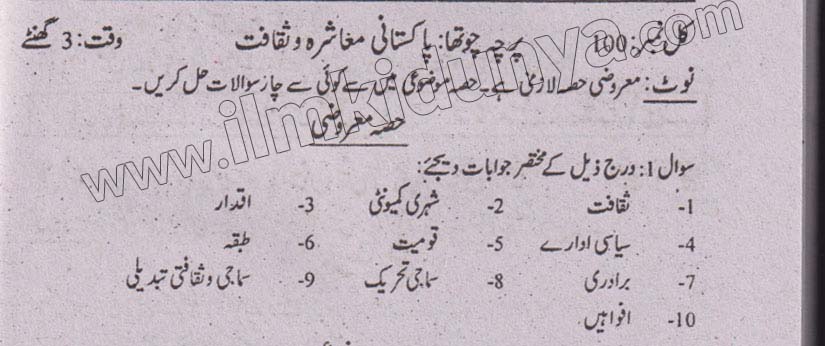 کل نمبر: 100 پرچہ چوتھا: پاکستانی معاشرہ وثقافت وقت: 3 گھنٹے
نوٹ: معروضی حصہ لازمی ہے۔ حصہ موضوعی میں سے کوئی سے چار سوالات حل کریں۔
حصہ معروضی
سوال 1: درج ذیل کے مختصر جوابات دیجئے:
1- ثقافت 2- شہری کمیونٹی 3- اقدار
4- سیاسی ادارے 5- قومیت 6- طبقہ
7- برادری 8- سماجی تحریک 9- سماجی وثقافتی تبدیلی
10- افواہیں
www.ilmkidunya.com